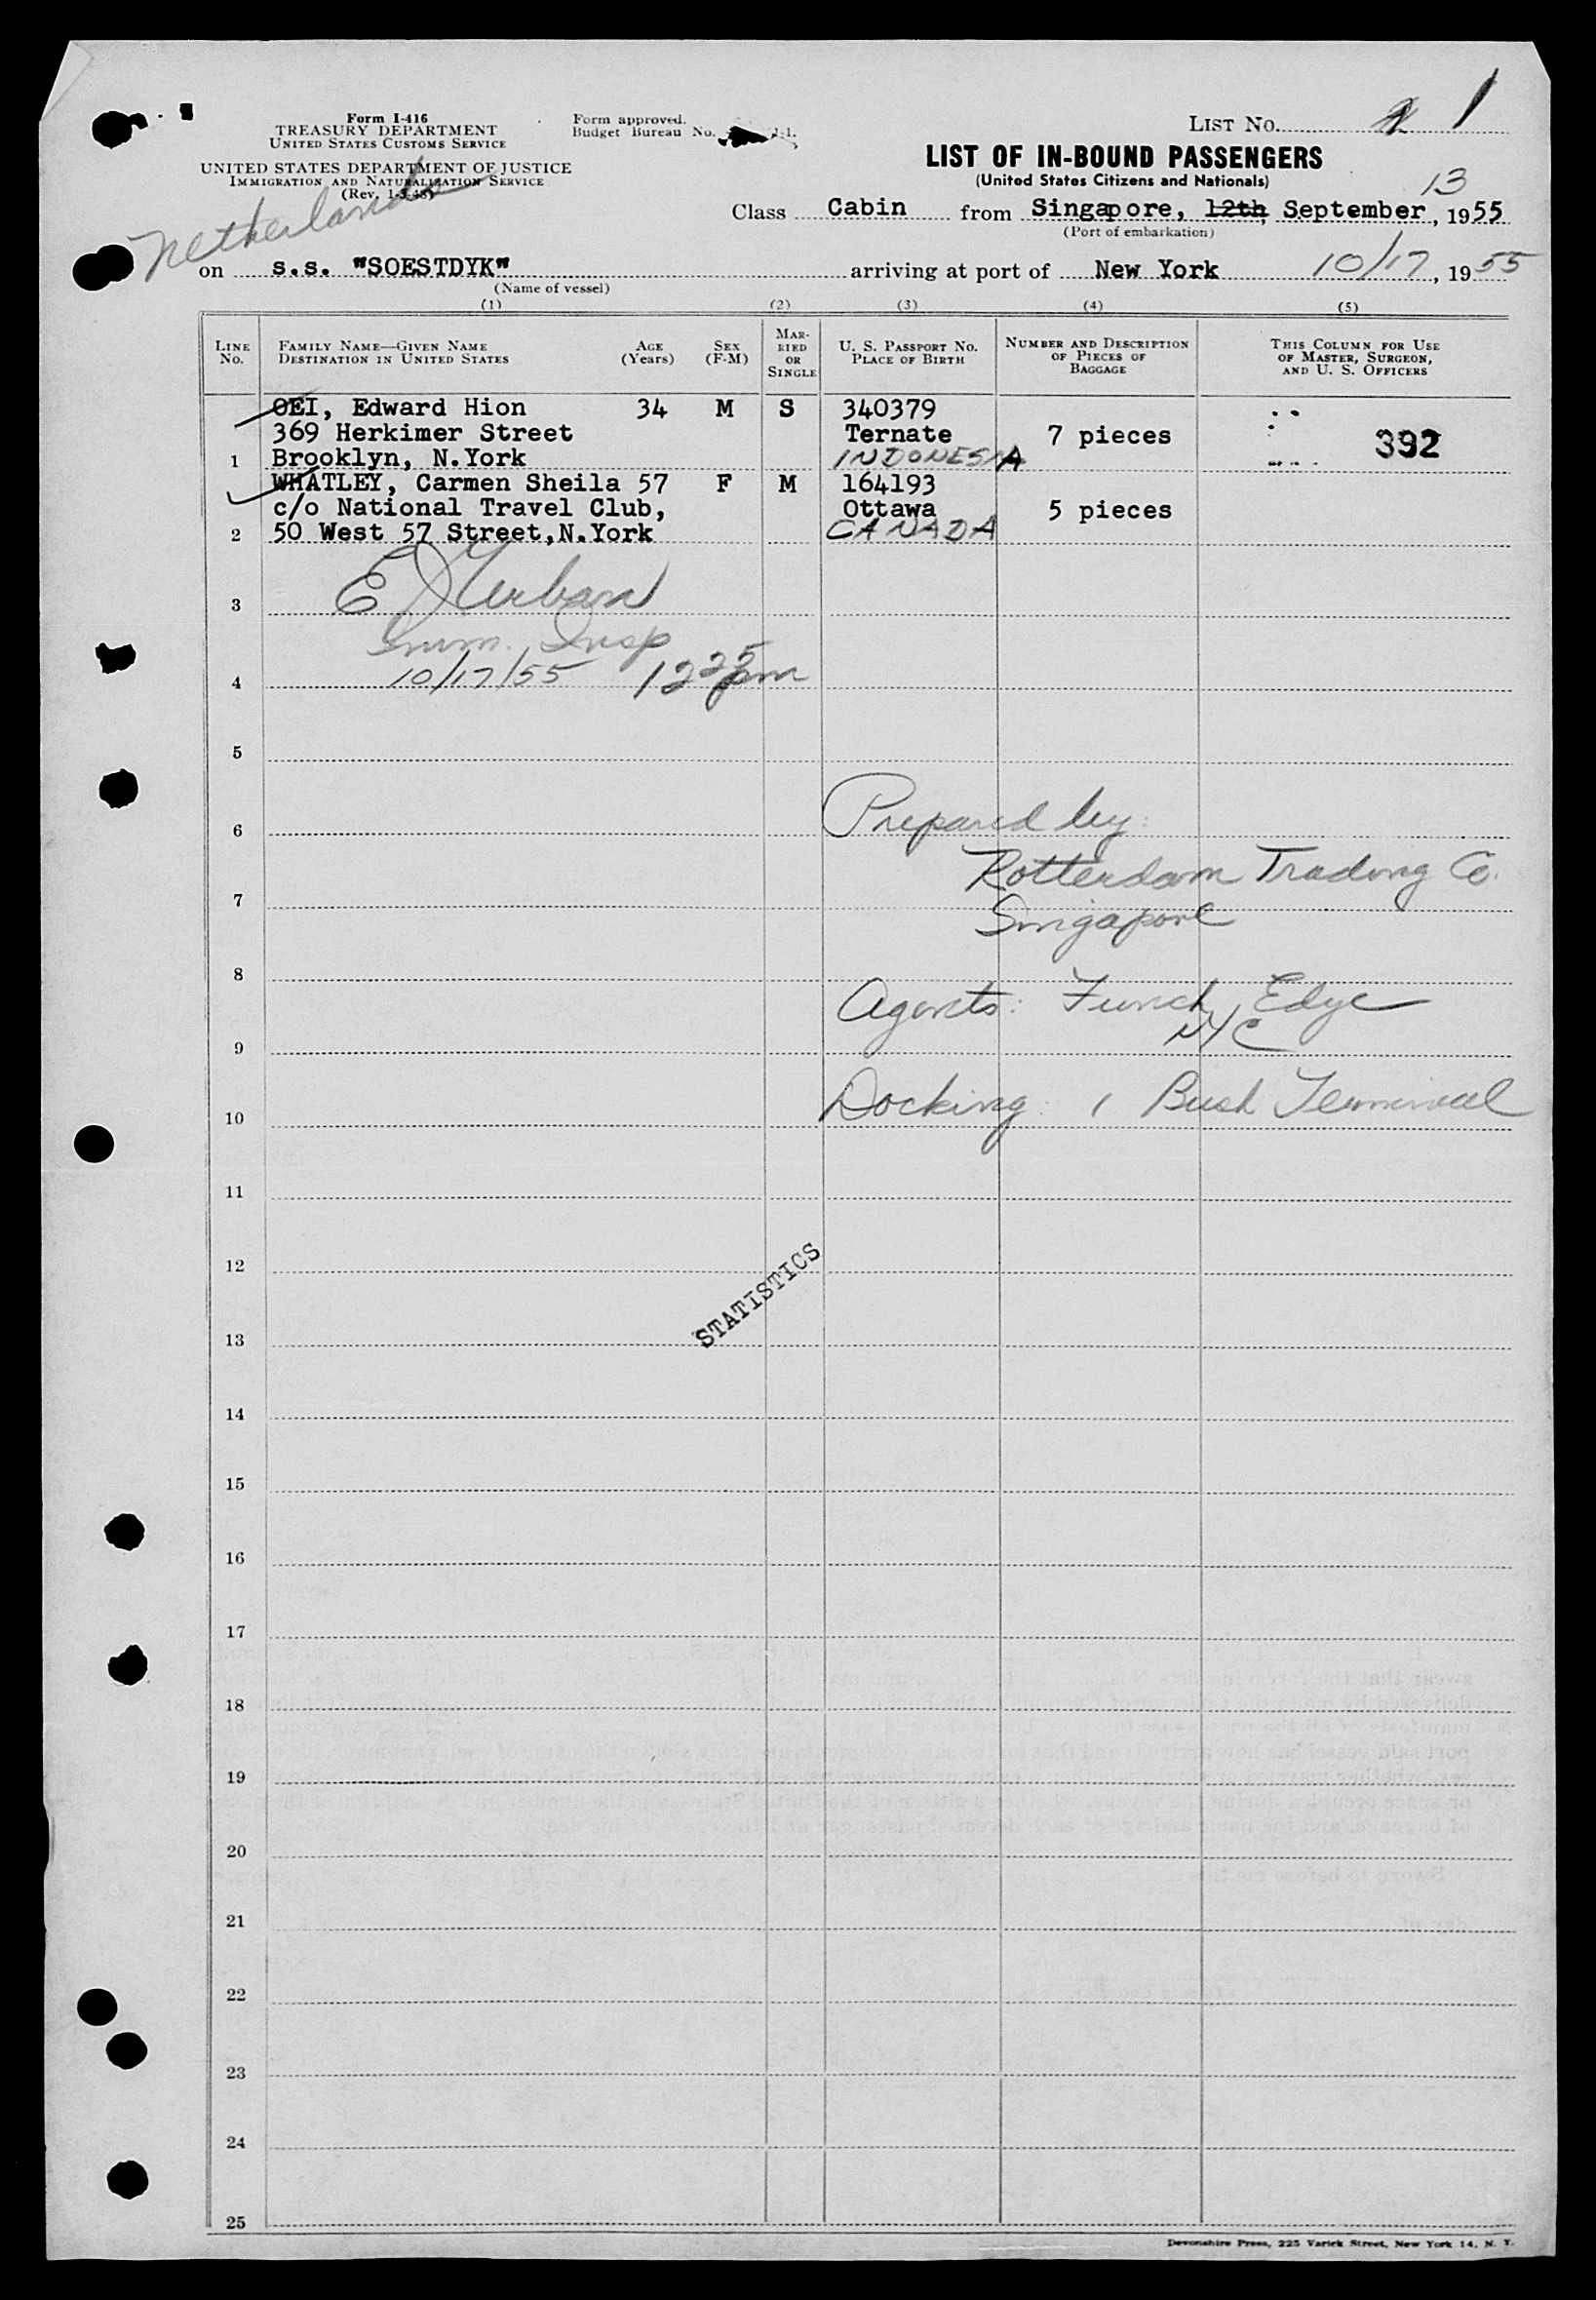 Form I-416
TREASURY DEPARTMENT
UNITED STATES CUSTOMS SERVICE
UNITED STATES DEPARTMENT OF JUSTICE
IMMIGRATION AND NATURALIZATION SERVICE
(Rev. 1-3-48)
Form approved.
Budget Bureau No.
LIST NO. 1
LIST OF IN-BOUND PASSENGERS
(United States Citizens and Nationals)
13
Class Cabin from Singapore, 12th, September, 1955
(Port of embarkation)
Netherlands
on s.s. "SOESTDYK" arriving at port of New York 10/17, 1955
(Name of vessel)
(1) (2) (3) (4) (5)
LINE No. FAMILY NAME—GIVEN NAME DESTINATION IN UNITED STATES AGE (Years) SEX (F-M) MARRIED OR SINGLE U. S. PASSPORT NO. PLACE OF BIRTH NUMBER AND DESCRIPTION OF PIECES OF BAGGAGE THIS COLUMN FOR USE OF MASTER, SURGEON, AND U. S. OFFICERS
OEI, Edward Hion 34 M S 340379
369 Herkimer Street Ternate 7 pieces 392
1 Brooklyn, N.York INDONESIA
WHATLEY, Carmen Sheila 57 F M 164193
c/o National Travel Club, Ottawa 5 pieces
2 50 West 57 Street,N.York CANADA
E J Urban
3
Imm. Insp
4 10/17/55 12 25 pm
5
6 Prepared by:
Rotterdam Trading Co.
7
Singapore
8
Agents: Funch, Edye
NYC
9
10 Docking: 1 Bush Terminal
11
12
STATISTICS
13
14
15
16
17
18
19
20
21
22
23
24
25
Devonshire Press, 225 Varick Street, New York 14, N. Y.